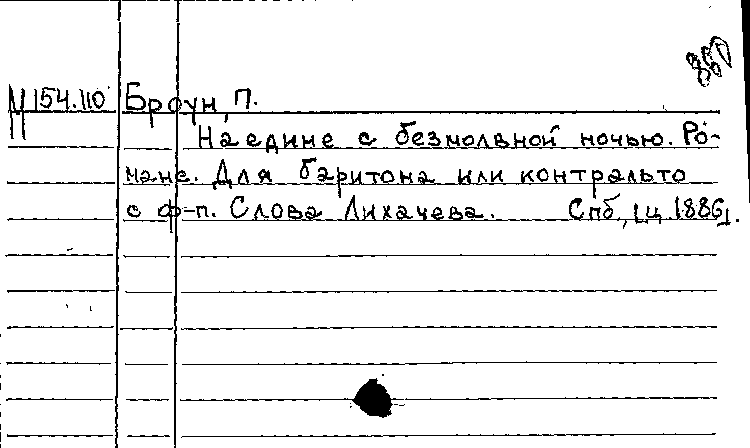 880
М 154.110 Броун, П.
Наедине с безмолвной ночью. Ро-
манс. Для баритона или контральто
с ф-п. Слова Лихачева. Спб., ц. 1886].